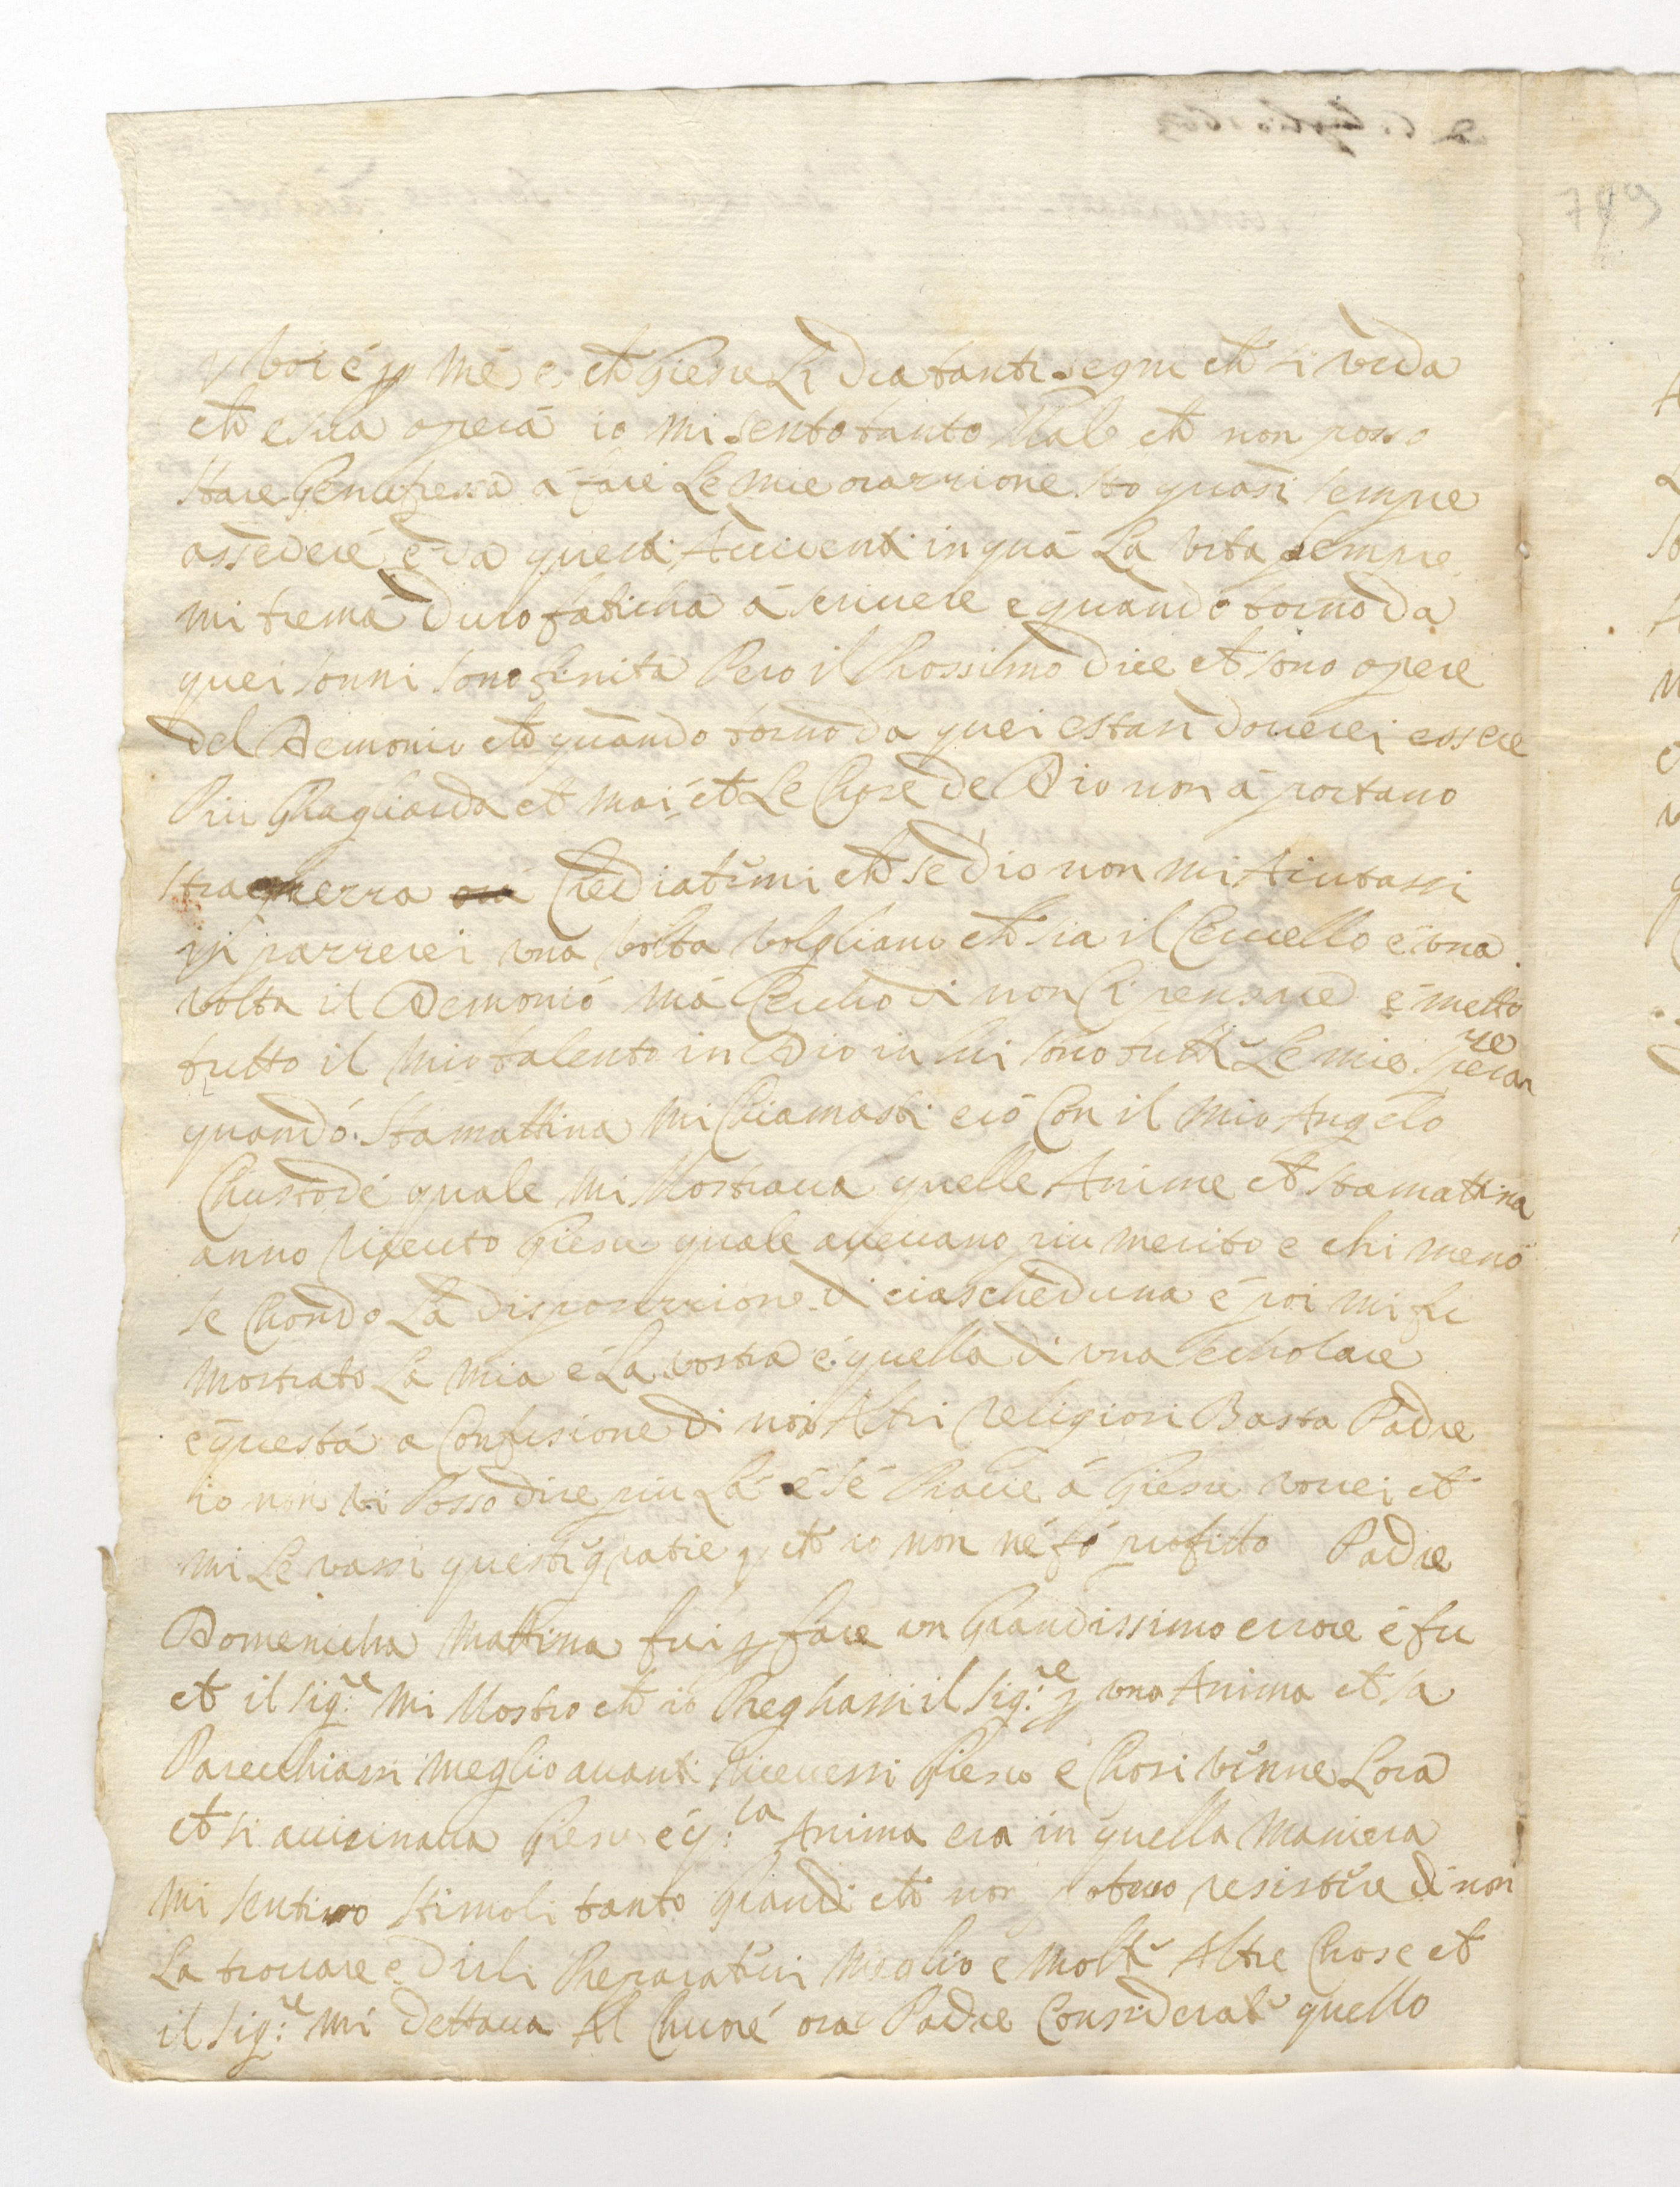 p voi é p me e che Giesu Li dia tanti segni che si veda
che e sua opera io mi sento tanto Male che non posso
stare Genufressa á fare Le mie orazzione sto quasi sempre
assedere e da questi Accidenti in quá La vita sempre
mi tremá Duro faticha á scrivere e quando torno da
quei sonni sono finita Pero il Prossimo dice che sono opere
del Demonio che quando torno da quei estasi doverei essere
Piu Ghagliarda che mai é che Le Chose de Dio non á portano
Crediatemi che se dio non mi Aiutassi
inpazzerei una volta volgliano che sia il Cervello e una
volta il Demonió má Cercho di non Ci pensare e metto
tutto il mio talento in Dio in lui sono tutte Le mie speran
ze
quandó Stamattina mi Chiamasti eró Con il mio Angelo
Chustode quale mi Mostrava quelle Anime che stamattina
anno riceuto Giesu quale avevano piu merito e chi meno
se Chondo La disposizzione di ciascheduna é poi mi fu
mostrato La mia é La vostra é quella di una Scholare
é questá a Confusione di noi Altri religiosi Basta Padre
io non vi Posso dire piu Lá é sé Piacie á Giesu vorei che
mi Levassi queste gratie p che io non né fó profitto Padre
Domenicha Mattina fui p fare un Grandissimo errore é fu
che il Sig:re mi Mostro che io Preghassi il Sig:re p una Anima che sa
Parecchiassi meglio avanti ricevessi Giesu é Chosi venne Lora
che si avicinava Giesu é q:ta Anima era in quella Maniera
mi sentivo stimoli tanto grandi che non potevo resistere di non
La trovare e Dirli Preparatevi Meglio é Molte Altre Chose che
il Sig:re mi dettava Al Chuoré ora Padre Considerate quello